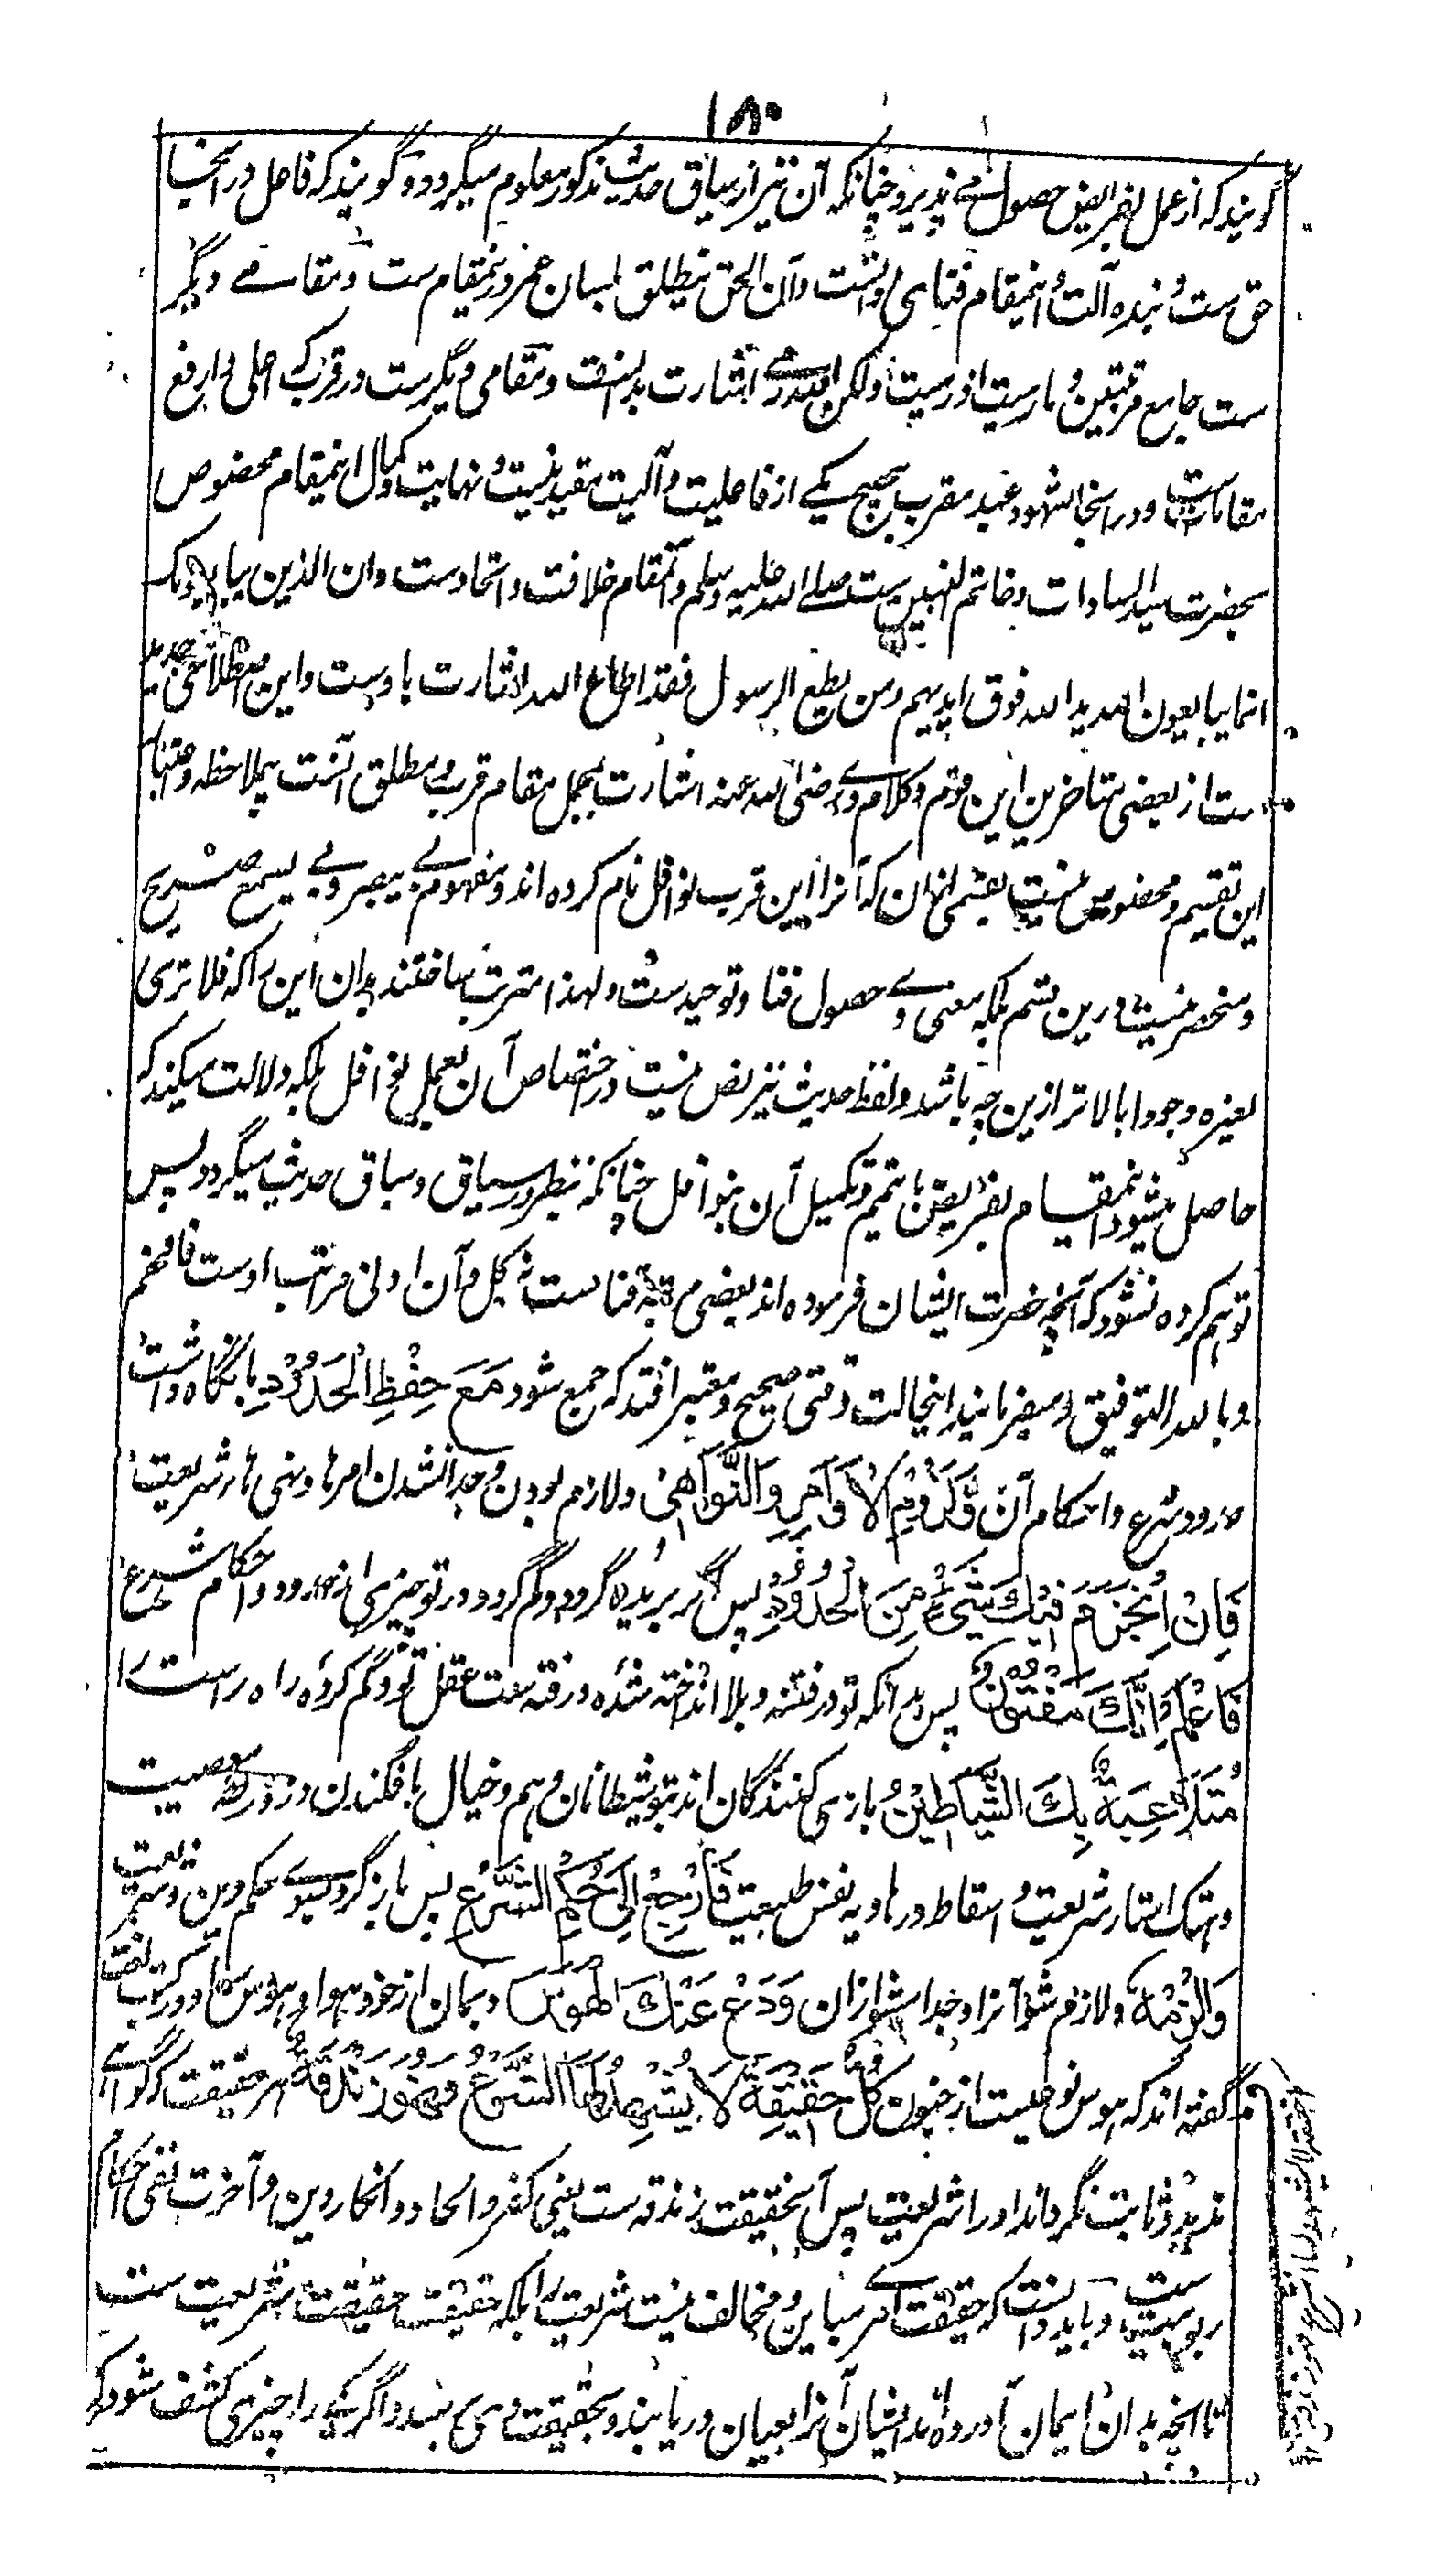 ۱۸۰
گویند که از عمل بفرایض حصول می پذیرد چنانکه آن نیز از سیاق حدیث مذکور معلوم میگردد و گویند که فاعل در اینجا
حق ست و بنده آلت و اینمقام فنای ذاتست و ان الحق ینطلق بلسان عمر درینمقام ست و مقامے دیگر
ست جامع مرتبتین و ما رمیت اذ رمیت ولکن الله رمے اشارت بدانست و مقامی دیگرست در قرب که اعلی و ارفع
مقاماتست و در اینجا شهود عبد مقرب بهیچ یکے از فاعلیت و آلیت مقید نیست و نهایت و کمال اینمقام مخصوص
بحضرت سید السادات و خاتم النبیین ست صلے الله علیه وسلم و آنمقام خلافت و اتحاد ست و ان الذین یبایعونک
انما یبایعون الله ید الله فوق ایدیهم و من یطع الرسول فقد اطاع الله اشارت باوست و این اصطلاحی جدید
ست از بعضی متاخرین این قوم و کلام وے رضی الله عنه اشارت بمجمل مقام قرب و مطلق آنست بملاحظه و اعتبار
این تقسیم و مخصوص نیست بقسمی ازان که آنرا این قرب نوافل نام کرده اند و مفهوم بے یبصر و بے یسمع صریح
و منحصر نیست درین قسم بلکه معنی وے حصول فنا و توحیدست و لهذا مترتب ساختند بدان این را که فلا تری
لغیره وجودا بالاتر ازین چه باشد و لفظ حدیث نیز نص نیست در اختصاص آن بعمل نوافل بلکه دلالت میکند که
حاصل میشود اینمقام بفرایض با تتمیم و تکمیل آن بنوافل چنانکه بنظر در سیاق و سباق حدیث میگردد پس
توهم کرده نشود که آنچه حضرت ایشان فرموده اند بعضی مرتبه فناست نه کل و آن ادنی مراتب اوست فافهم
و بالله التوفیق و میفرمایند اینحالت وقتی صحیح و معتبر افتد که جمع شود مَعَ حِفْظِ الْحُدُوْدِ با نگاه داشت
حدود شرع و احکام آن وَلُزُوْمِ الْاَوَامِرِ وَالنَّوَاهِیْ و لازم بودن و جدا نشدن امرها و نهی ها شریعت
فَاِنْ اِنْخَرَمَ فِیْكَ شَیْءٌ مِنَ الْحُدُوْدِ پس اگر بریده گردد و گم گردد در تو چیزی از حدود و احکام شرع
فَاعْلَمْ اَنَّكَ مَفْتُوْنٌ پس بدانکه تو در فتنه و بلا انداخته شدۀ و رفته ست عقل تو و گم کردۀ راه راست را
مُتَلَاعِبَةٌ بِكَ الشَّیَاطِیْنُ بازی کنندگان اند بتو شیطانان وهم و خیال بافگندن در ورطه معصیت
و هتک استار شریعت و اسقاط در هاویه نفس طبیعت فَارْجِعْ اِلٰی حُكْمِ الشَّرْعِ پس بازگرد بسوے حکم دین و شریعت
وَالْزَمْهُ و لازم شو آنرا و جدا مشو ازان وَدَعْ عَنْكَ الْهَوَسَ و بمان از خود هوا و هوس را و در کتب لغت
گفته اند که هوس نوعیست از جنون كُلُّ حَقِیْقَةٍ لَا یَشْهَدُ لَهَا الشَّرْعُ فَهُوَ زَنْدَقَةٌ هر حقیقت که گواهے
ندهد و ثابت نگرداند او را شریعت پس آنحقیقت زندقه ست یعنی کفر و الحاد و انکار دین و آخرت و نفی احکام
ربوبیت ست و باید دانست که حقیقت امرے مباین و مخالف نیست شریعت را بلکه حقیقت حقیقت شریعت ست
تا آنچه بدان ایمان آورده اند ایشان آنرا بعیان دریابند و بحقیقت وی رسند و اگر یکے را چیزی کشف شود که